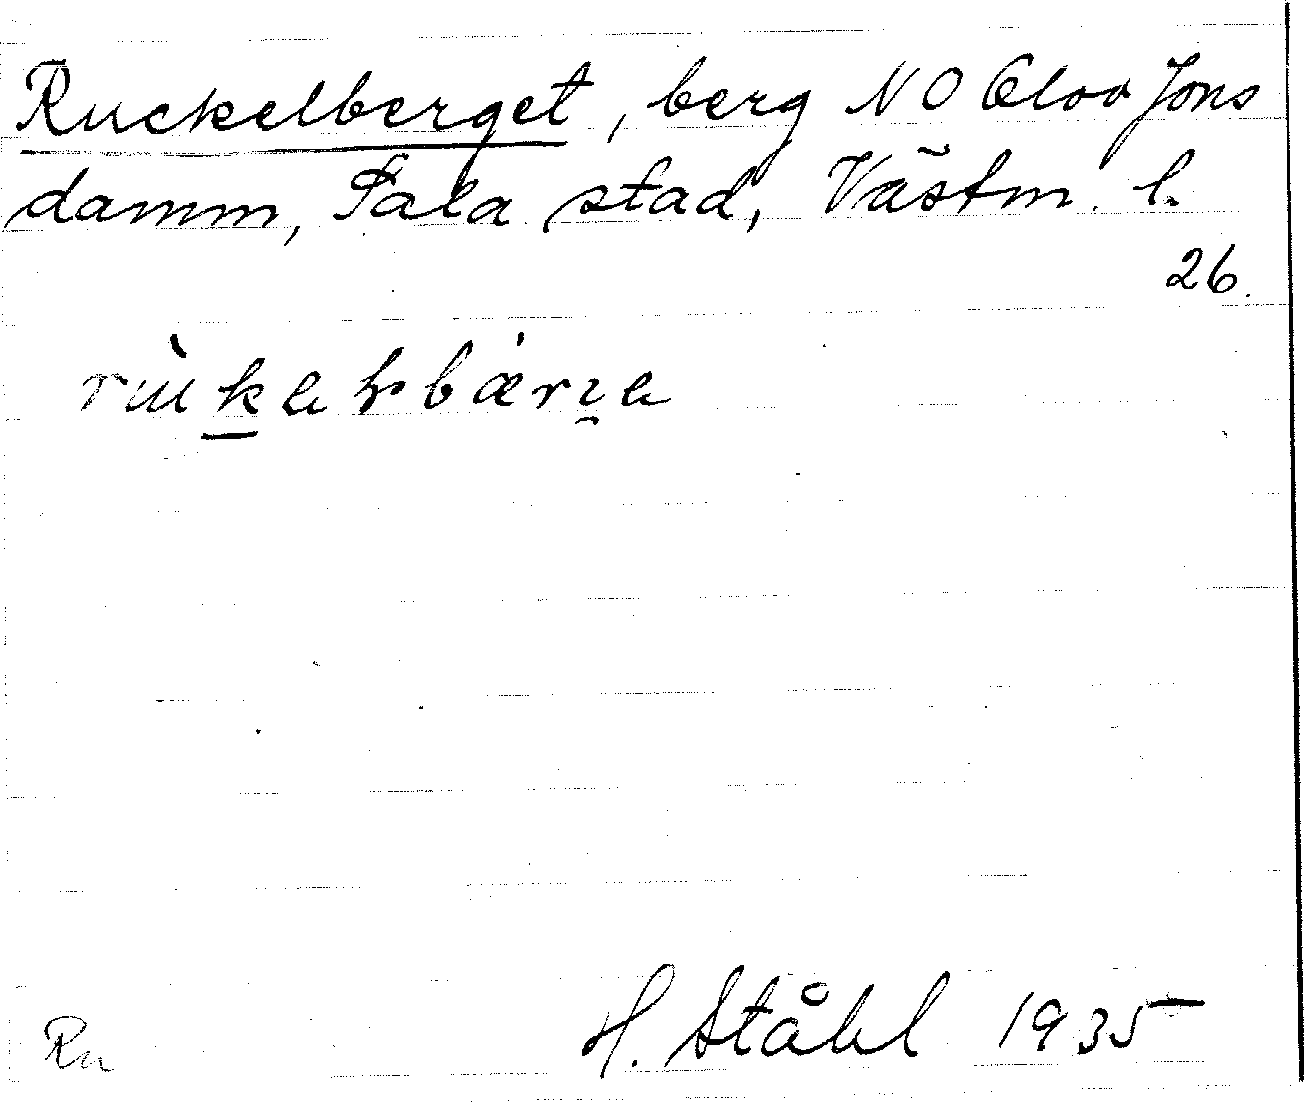 Ruckelberget, berg NO Olov Jons
damm, Sala stad, Västm. l.
26.
H. Ståhl 1935
Ru